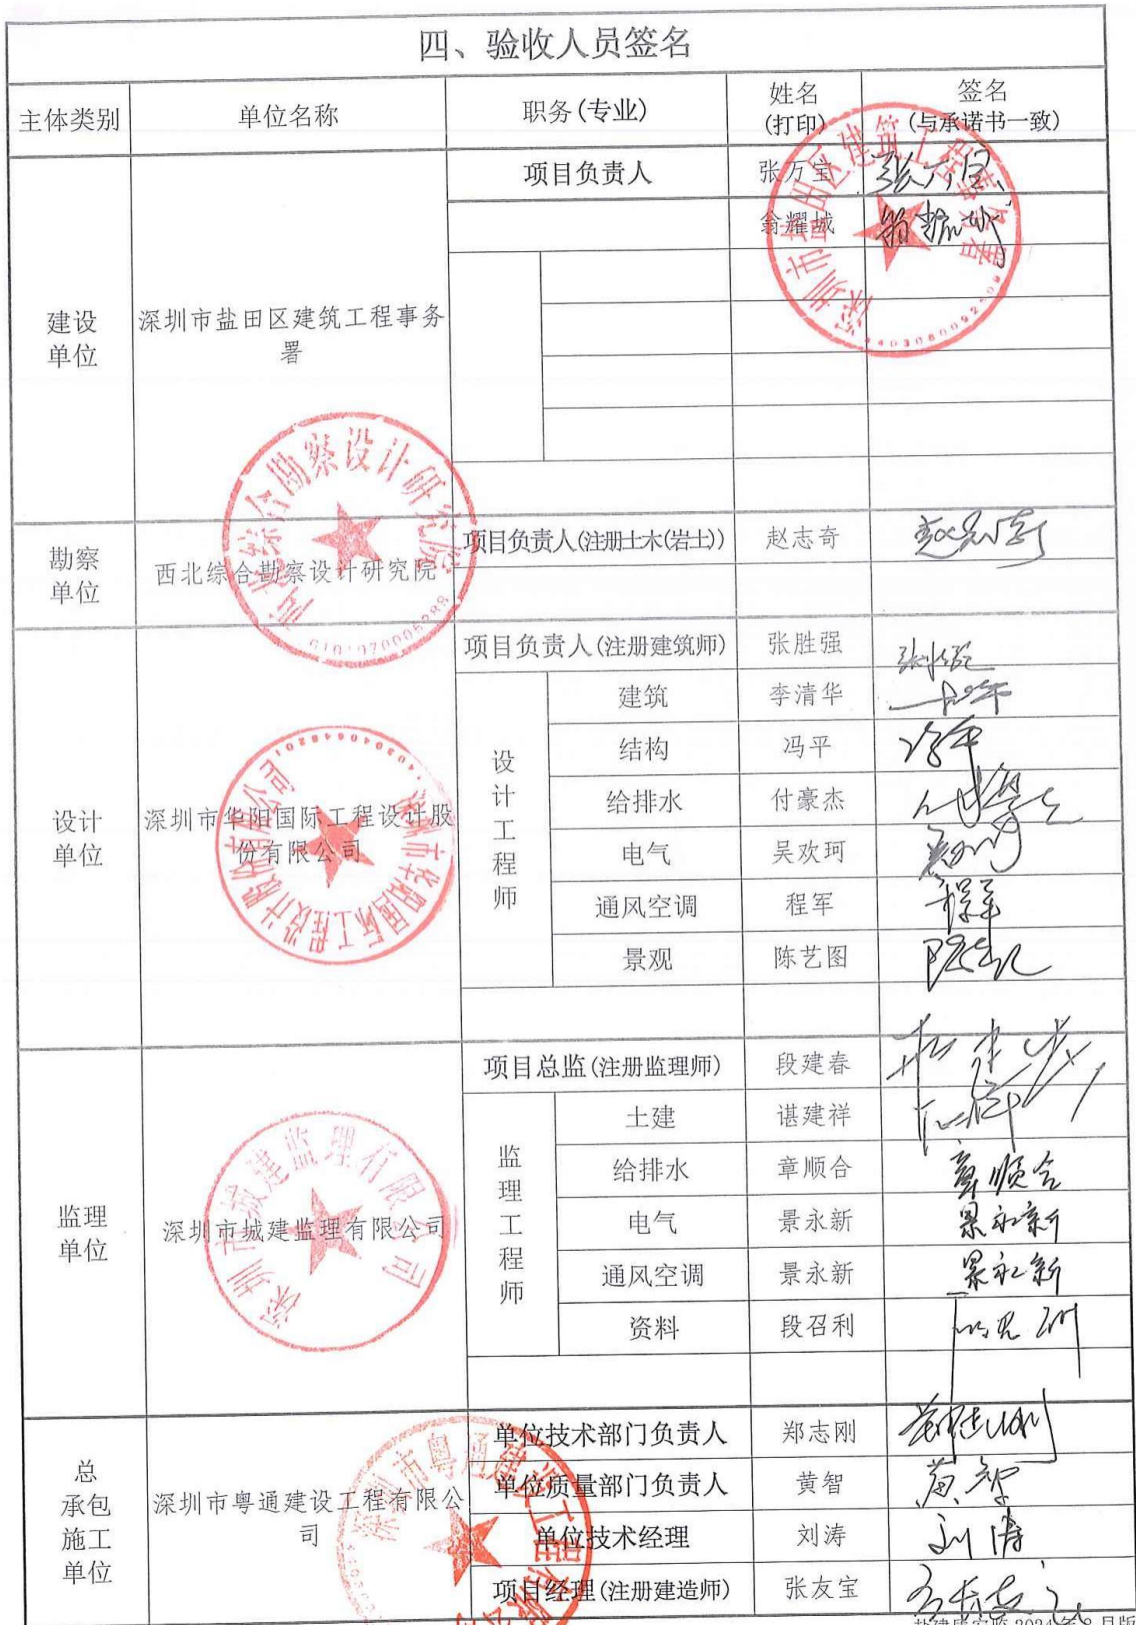 四、验收人员签名
主体类别 单位名称 职务(专业) 姓名(打印) 签名(与承诺书一致)
建设单位 深圳市盐田区建筑工程事务署 项目负责人 张万宝 张万宝
翁耀城
深圳市盐田区建筑工程事务署
勘察单位 西北综合勘察设计研究院 项目负责人(注册土木(岩土)) 赵志奇
西北综合勘察设计研究院
设计单位 深圳市华阳国际工程设计股份有限公司 项目负责人(注册建筑师) 张胜强
设计工程师 建筑 李清华
结构 冯平 冯平
给排水 付豪杰
电气 吴欢珂
通风空调 程军 程军
景观 陈艺图
深圳市华阳国际工程设计股份有限公司
监理单位 深圳市城建监理有限公司 项目总监(注册监理师) 段建春
监理工程师 土建 谌建祥
给排水 章顺合 章顺合
电气 景永新 景永新
通风空调 景永新 景永新
资料 段召利
深圳市城建监理有限公司
总承包施工单位 深圳市粤通建设工程有限公司 单位技术部门负责人 郑志刚 郑志刚
单位质量部门负责人 黄智 黄智
单位技术经理 刘涛 刘涛
项目经理(注册建造师) 张友宝
深圳市粤通建设工程有限公司
2024年8月版